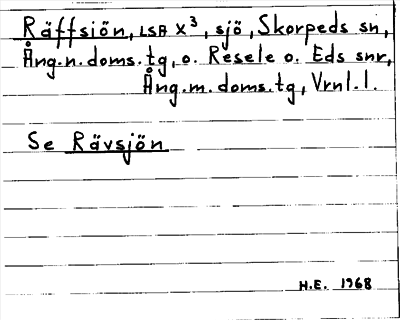 Räffsjön, LSA X³, sjö, Skorpeds sn,
Ång.n.doms.tg, o. Resele o. Eds snr,
Ång.m.doms.tg, Vrnl.l.
Se Rävsjön
H.E. 1968